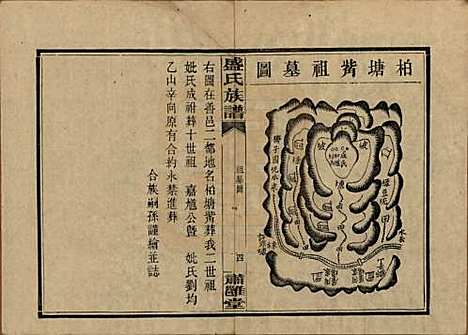 柏塘觜祖墓圖
盛氏族譜
祖墓圖
四
肅雝堂
右圖在善邑二都地名柏塘觜葬我二世祖
妣氏成祔葬十世祖 嘉馗公暨 妣氏劉均
乙山辛向原有合約永禁進葬
合族嗣孫謹繪並誌